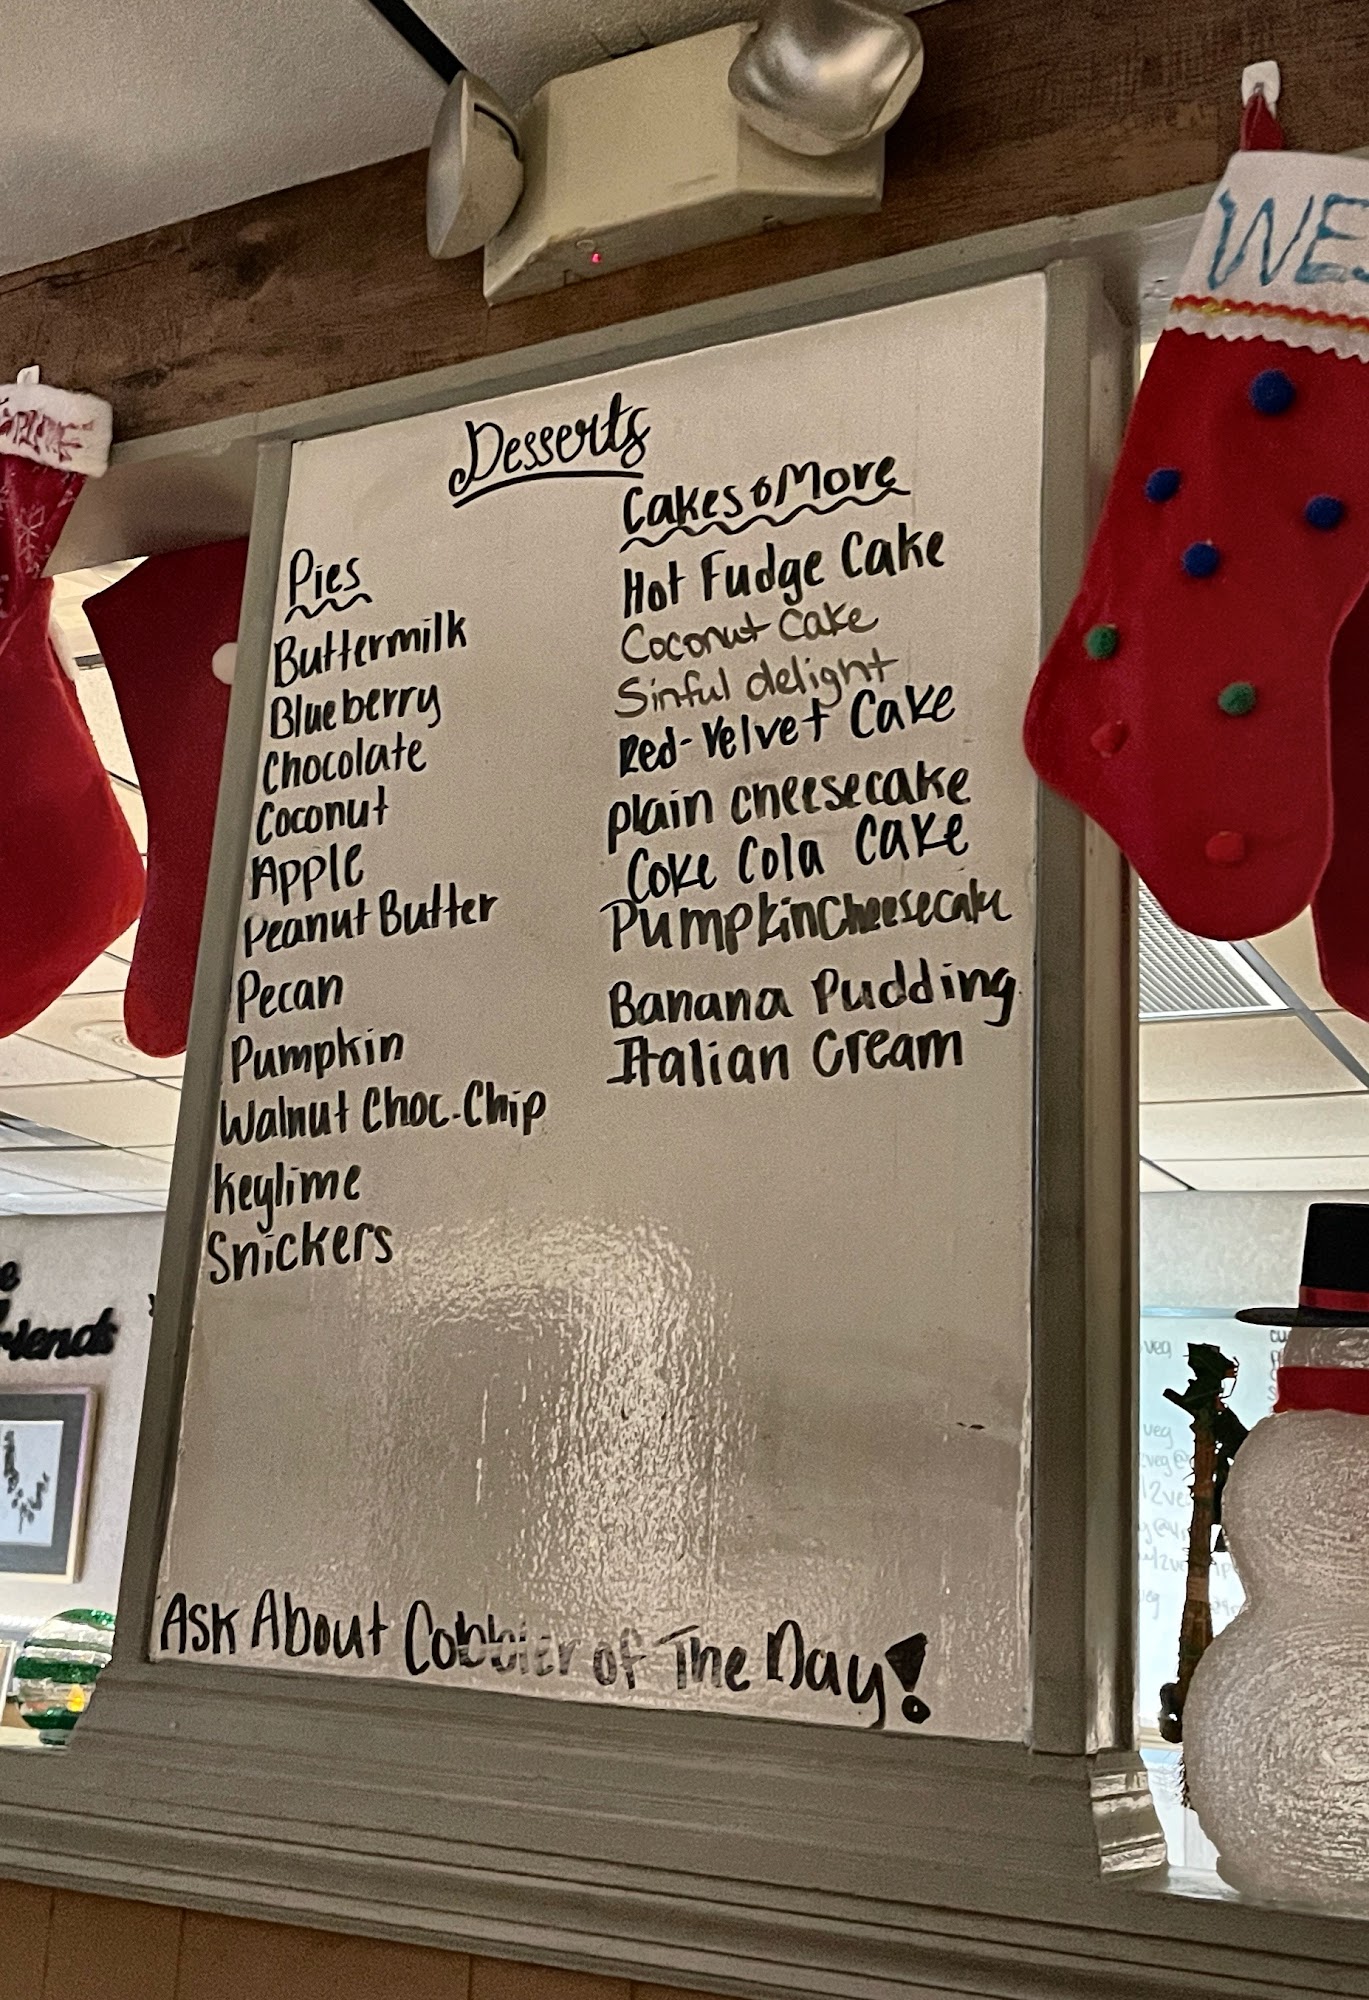 Desserts
Pies
Buttermilk
Blueberry
Chocolate
Coconut
Apple
Peanut Butter
Pecan
Pumpkin
Walnut Choc-Chip
Keylime
Snickers
Cakes & More
Hot Fudge Cake
Coconut Cake
Sinful delight
Red-Velvet Cake
plain cheesecake
Coke Cola Cake
Pumpkin Cheesecake
Banana Pudding
Italian Cream
Ask About Cobbler of The Day!
WES
riends
veg
veg